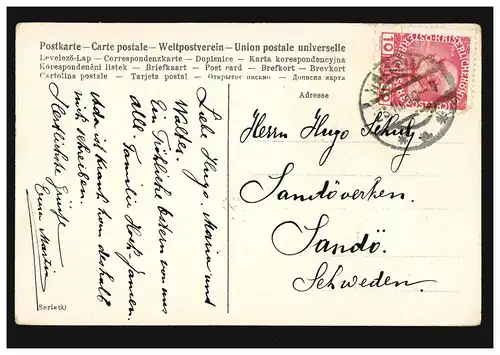 Postkarte – Carte postale – Weltpostverein – Union postale universelle
Levelező-Lap – Correspondenzkarte – Dopisnice – Karta korespondencyjna
Korespondenční lístek – Briefkaart – Post card – Brefkort – Brevkort
Cartolina postale – Tarjeta postal – Открытое письмо – Дописна карта
Adresse
Liebe Hugo, Maria und
Walter.
Ein Fröhliche Ostern von uns
alle. Familie
Ada ist krank kom deshalb
nicht schreiben.
Herzlichste Grüsse
Martin
Serie 60
Herrn Hugo Schulz
Sandöverken.
Sandö.
Schweden.
10
10